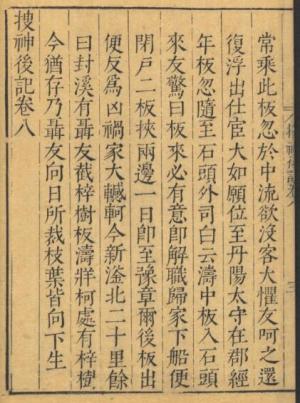 常乘此板忽於中流欲没客大懼友呵之還
復浮出仕宦大如願位至丹陽太守在郡經
年板忽隨至石頭外司白云濤中板入石頭
來友驚曰板來必有意即解職歸家下船便
閉戸二板挾兩邊一日即至豫章爾後板出
便反爲凶禍家大轗軻今新淦北二十里餘
曰封溪有聶友截梓樹板濤牂柯處有梓樹
今猶存乃聶友向日所裁枝葉皆向下生
搜神後記卷八